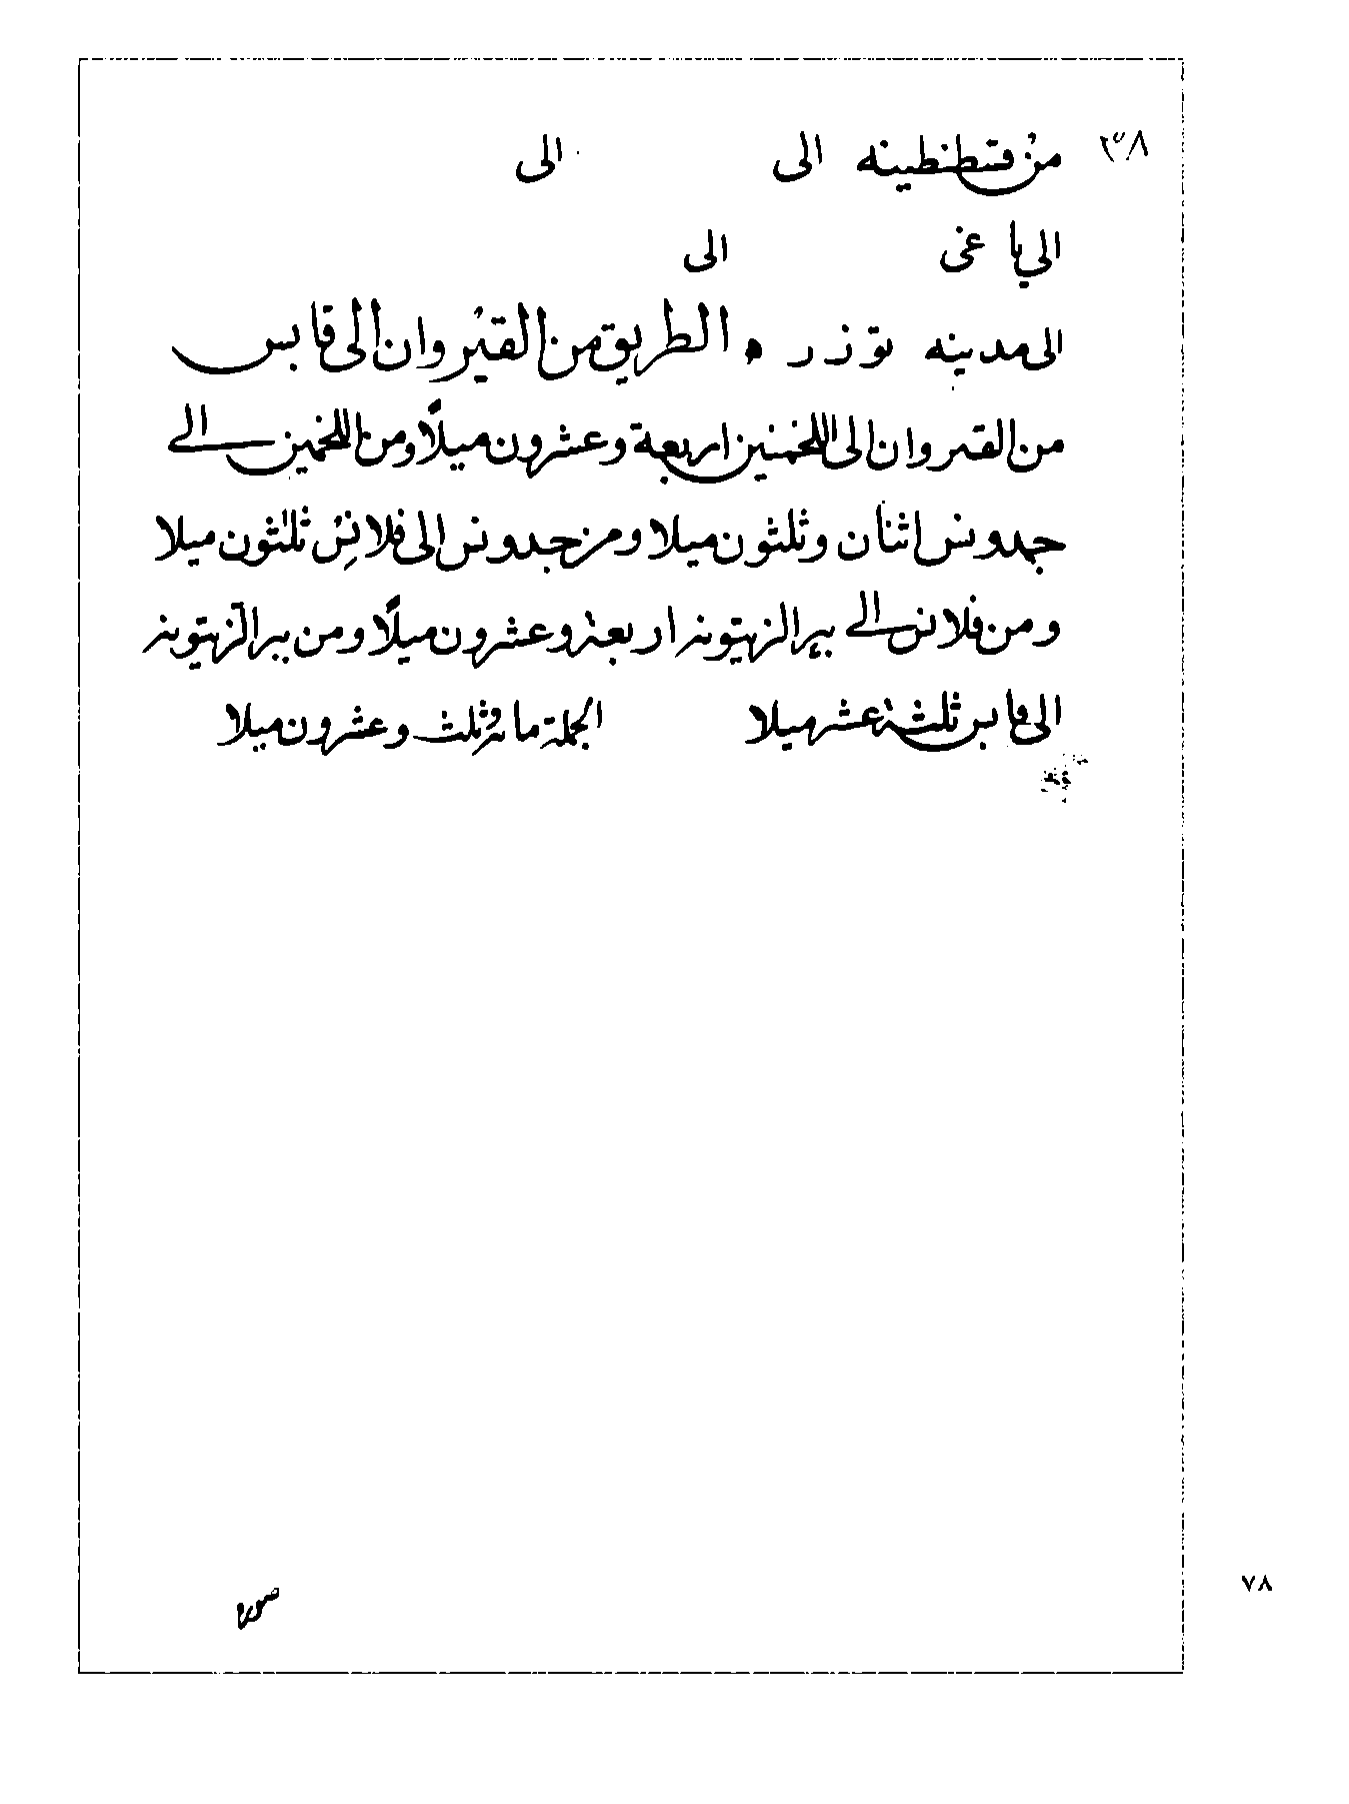 ٣٨
من قسطنطينه الى الى
الي باغى الى
الى مدينه توزر ه الطريق من القيروان الى قابس
من القيروان الى اللخمنين اربعة وعشرون ميلًا ومن اللخمين الے
جمدونس اثنان وثلثون ميلا ومن جدونس الى فلانس ثلثون ميلا
ومن فلانس الے بير الزيتونه اربعة وعشرون ميلًا ومن بير الزيتونه
الى قابس ثلثة عشر ميلا الجملة مائة وثلث وعشرون ميلا
صوره
٧٨